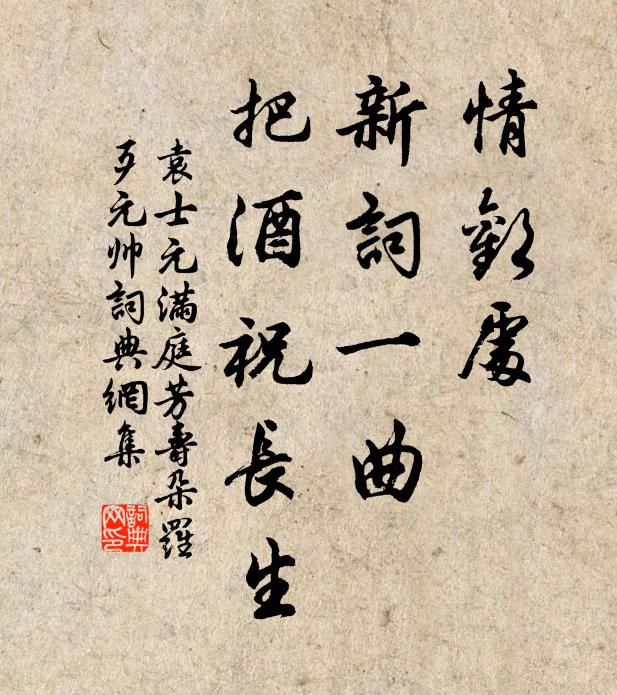 情歡處
新詞一曲
把酒祝長生
袁士元滿庭芳壽朵羅
歹元帅詞典網集
詞典网印